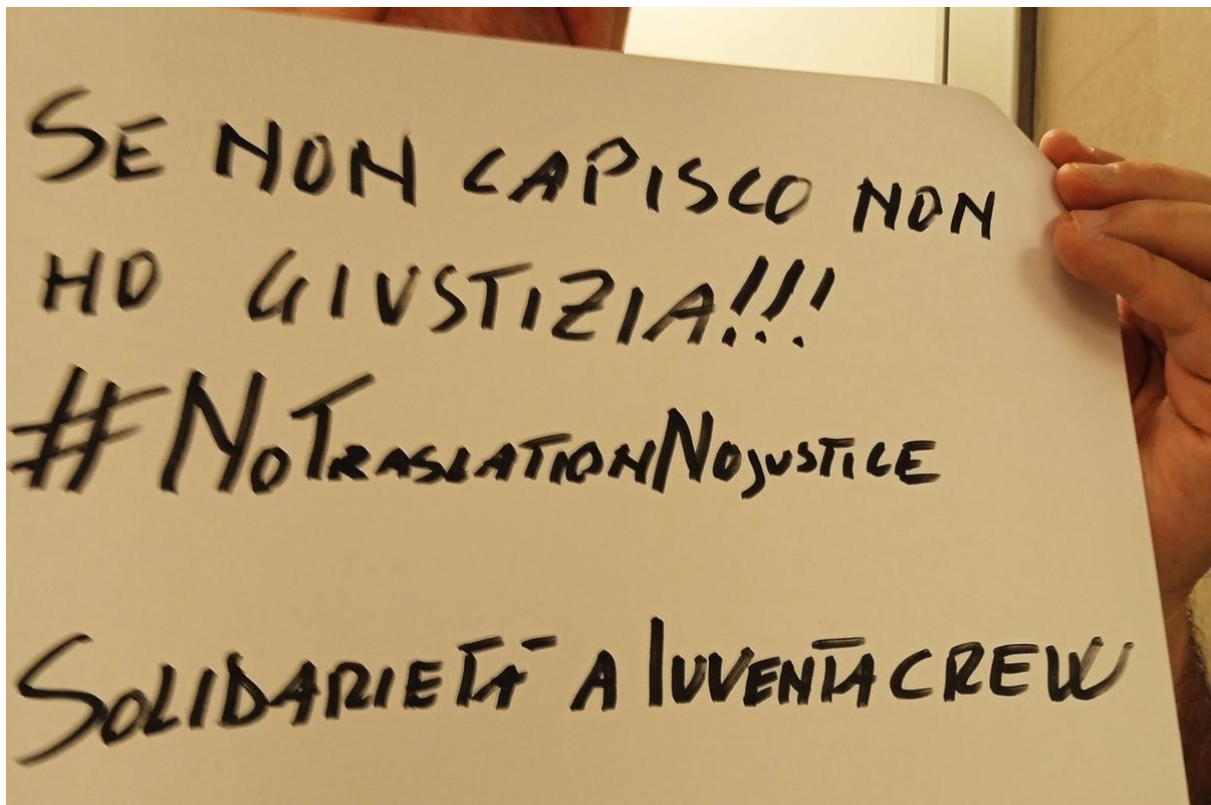 SE NON CAPISCO NON
HO GIUSTIZIA!!!
#NOTRASLATIONNOJUSTICE
SOLIDARIETÀ A IUVENTACREW